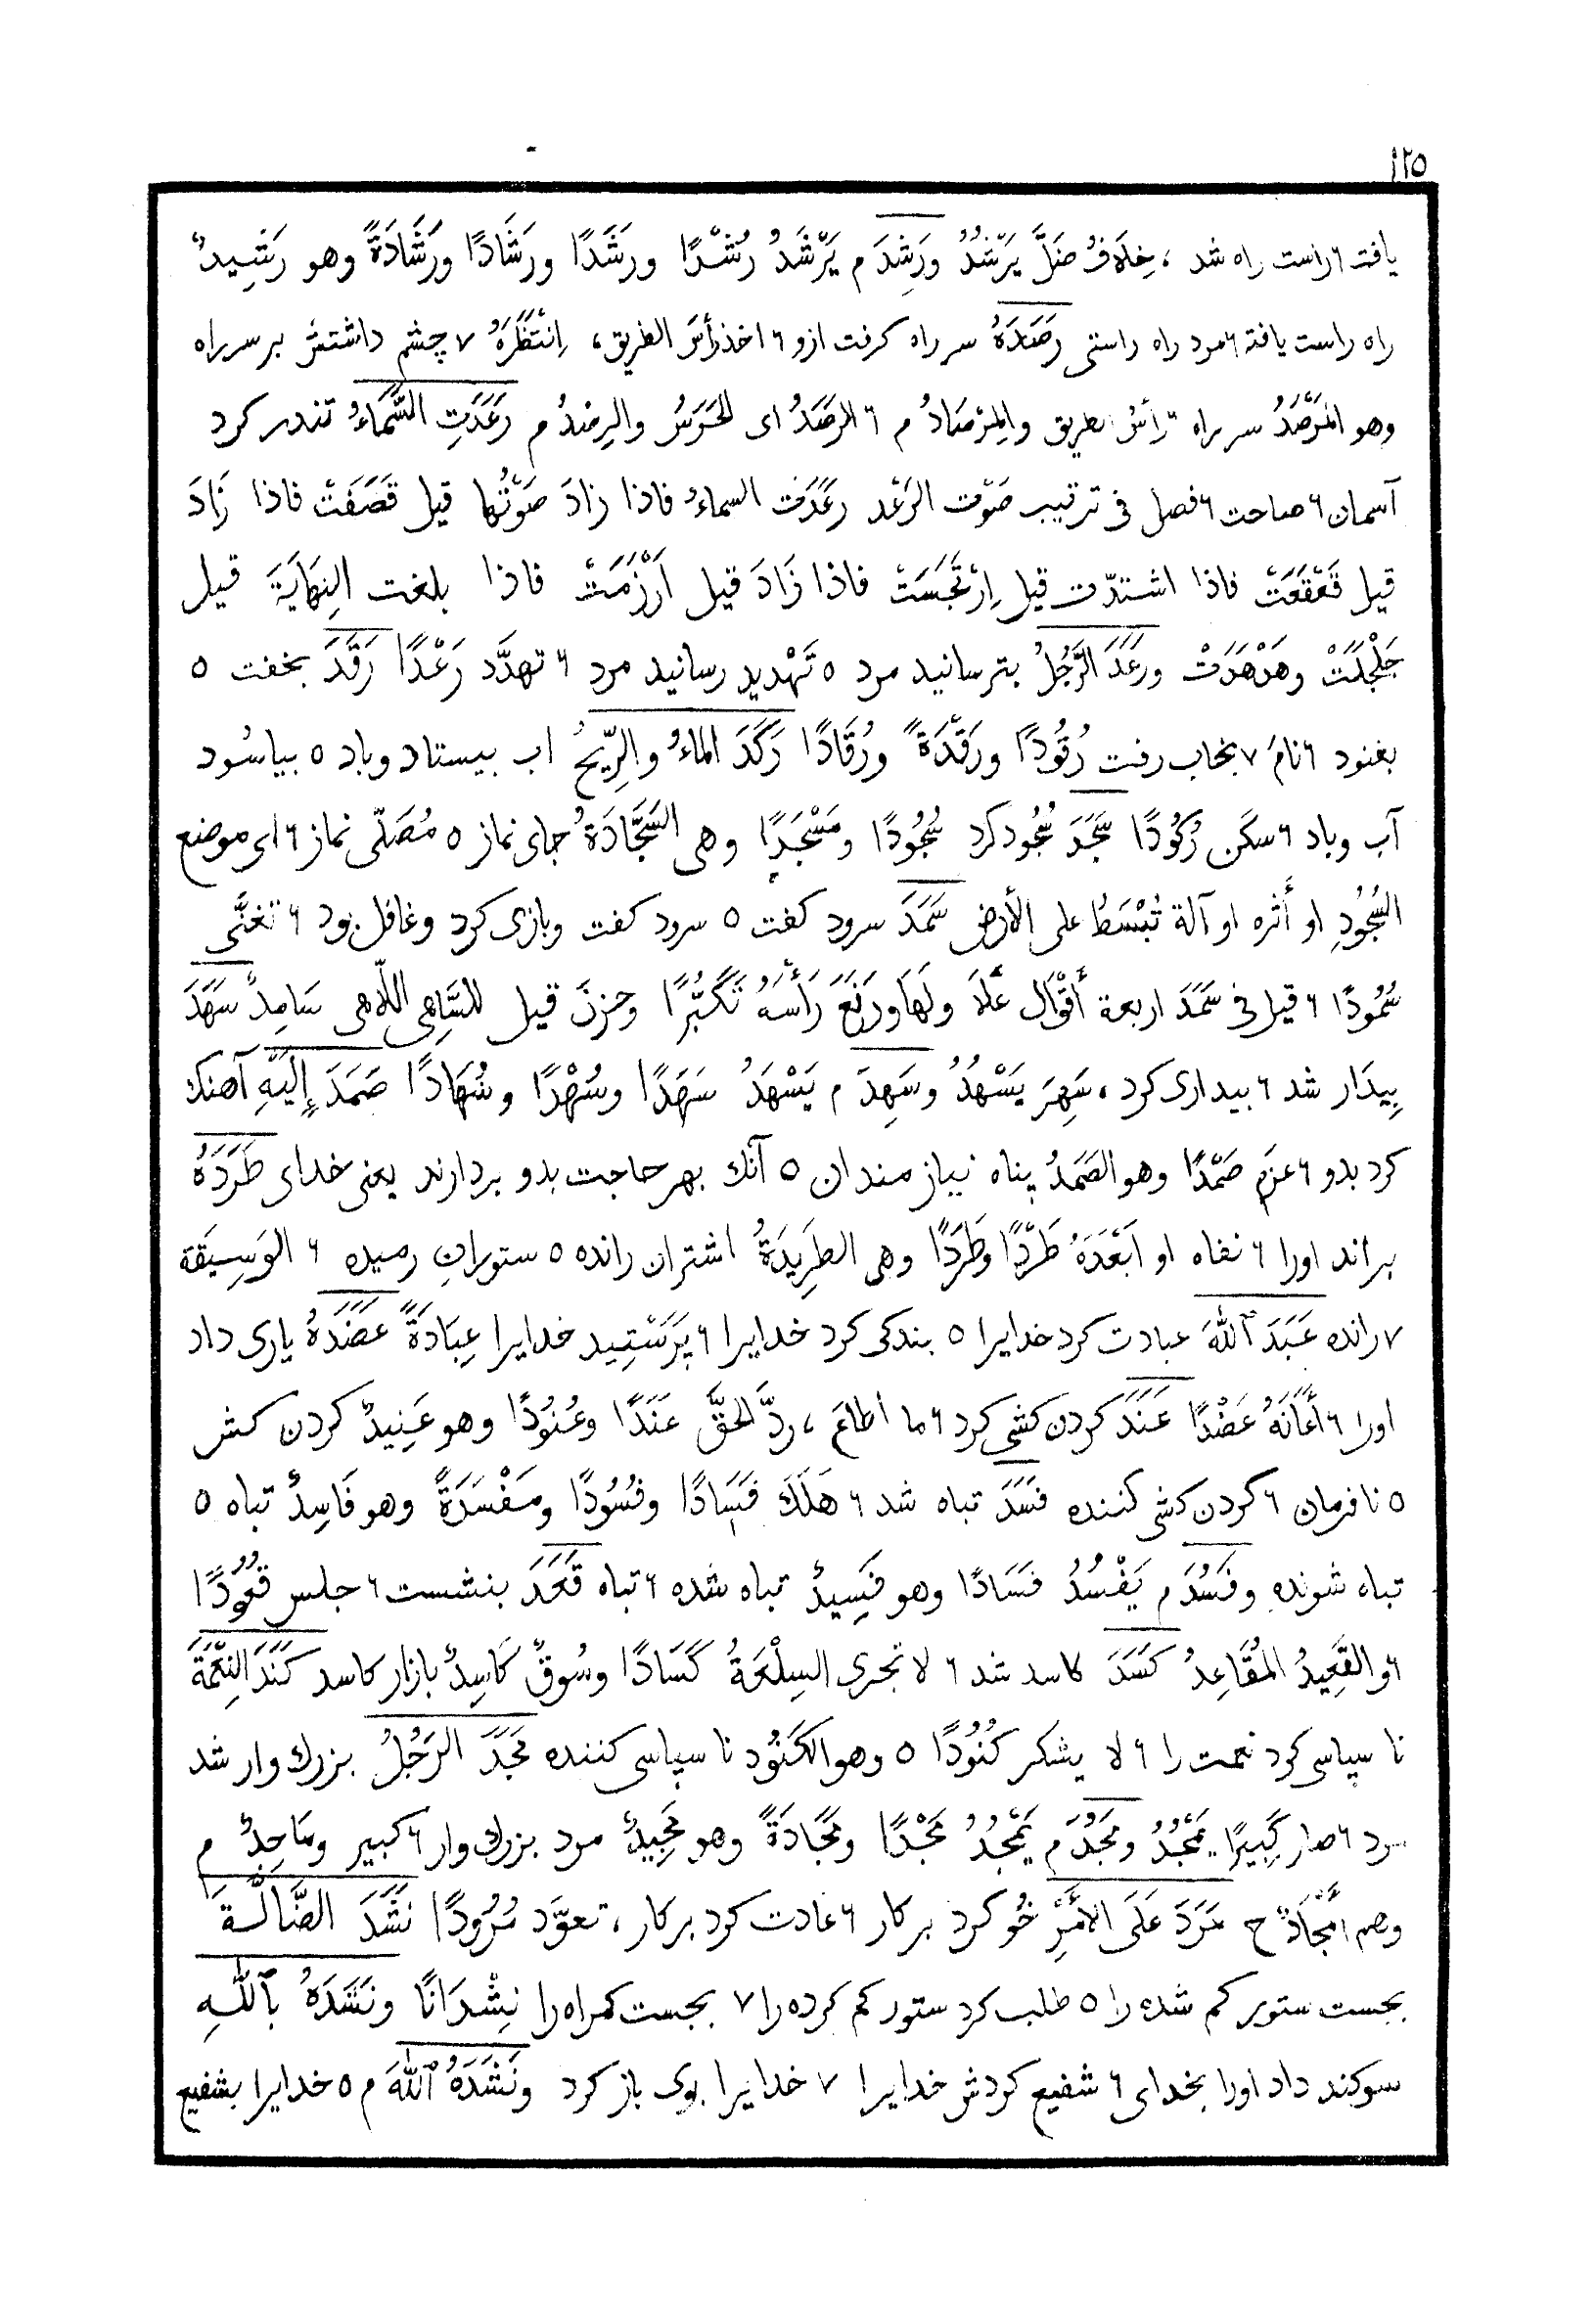 ١٢٥
يافت ٦ راست راه شد ، خِلَافُ ضَلَّ يَرْشُدُ ورَشِدَ م يَرْشَدُ رُشْدًا ورَشَدًا ورَشَادًا ورَشَادَةً وهو رَشِيدٌ
راه راست يافته ٦ مرد راه راستى رَصَدَهُ سر راه كرفت ازو ٦ اخذ رأسَ الطريق ، اِنْتَظَرَهُ ٧ چشم داشتش بر سر راه
وهو المَرْصَدُ سر راه رأسُ طريق والمِرْصَادُ م ٦ الرَصَدُ اى الحَرَسُ والرِصْدُ م رَعَدَتِ السَّمَاءُ تندر كرد
آسمان ٦ صاحت ٦ فصل فى ترتيب صَوْت الرَعْد رَعَدَت السماءُ فاذا زادَ صَوْتُها قيل قَصَفَتْ فاذا زَادَ
قيل قَعْقَعَتْ فاذا اشتدّت قيل اِرْتَجَسَتْ فاذا زَادَ قيل اَرْزَمَتْ فاذا بلغت النِهَايَةَ قيل
جَلْجَلَتْ وهَدْهَدَتْ ورَعَدَ الرَّجُلُ بترسانيد مرد ٥ تَهْديد رسانيد مرد ٦ تهدَّد رَعْدًا رَقَدَ بخفت ٥
بغنود ٦ نامَ ٧ بخاب رفت رُقُودًا ورَقْدَةً ورُقَادًا رَكَدَ الماءُ والرِّيحُ اب بيستاد وباد ٥ بياسُود
آب وباد ٦ سكن رُكُودًا سَجَدَ سُجُود كرد سُجُودًا ومَسْجَدًا وهى السَجَّادَةُ جاى نماز ٥ مُصَلّى نماز ٦ اى موضع
السُجُودِ او أَثره او آلة تُبْسَطُ على الأرض سَمَدَ سرود كفت ٥ سرود كفت وبازى كرد وغافل بود ٦ تغنَّى
سُمُودًا ٦ قيل فى سَمَدَ اربعة أَقْوَال عَلَا ولَهَا ورَفَعَ رَأْسَهُ تَكَبُّرًا وحزنَ قيل للسَّاهِى اللّاهى سَامِدٌ سَهَدَ
بِيدَار شد ٦ بيدارى كرد ، سَهِرَ يَسْهَدُ وسَهِدَ م يَسْهَدُ سَهَدًا وسُهْدًا وسُهَادًا صَمَدَ إِلَيْهِ آهنك
كرد بدو ٦ عزم صَمْدًا وهو الصَمَدُ پناه نيازمندان ٥ آنك بهر حاجت بدو بردارند يعنى خداى طَرَدَهُ
براند اورا ٦ نفاه او اَبْعَدَهُ طَرْدًا وطَرَدًا وهى الطَرِيدَةُ اشتران رانده ٥ ستورانِ رميده ٦ الوَسِيقة
٧ رانده عَبَدَ اللّٰهَ عبادت كرد خدايرا ٥ بندكى كرد خدايرا ٦ پَرَسْتِيد خدايرا عِبَادَةً عَضَدَهُ يارى داد
اورا ٦ أَعَانَهُ عَضْدًا عَنَدَ كردن كشى كرد ٦ ما اطاعَ ، ردَّ الحقَّ عَنَدًا وعُنُودًا وهو عَنِيدٌ كردن كش
٥ نافرمان ٦ كردن كشى كننده فَسَدَ تباه شد ٦ هَلَكَ فَسَادًا وفُسُودًا ومَفْسَدَةً وهو فَاسِدٌ تباه ٥
تباه شونده وفَسُدَ م يَفْسُدُ فَسَادًا وهو فَسِيدٌ تباه شده ٦ تباه قَعَدَ بنشست ٦ جلس قُعُودًا
٦ والقَعِيدُ المُقَاعِدُ كَسَدَ كاسد شد ٦ لا تجرى السِلْعَةُ كَسَادًا وسُوقٌ كَاسِدٌ بازار كاسد كَنَدَ النِعْمَةَ
نا سپاسى كرد نعمت را ٦ لا يشكر كُنُودًا ٥ وهو الكَنُود نا سپاسى كننده مَجَدَ الرَجُلُ بزرك وار شد
مرد ٦ صار كَبِيرًا يَمْجُدُ ومَجُدَ م يَمْجُدُ مَجْدًا ومَجَادَةً وهو مَجِيدٌ مرد بزرك وار ٦ كبير ومَاجِدٌ م
وهم اَمْجَادٌ ح مَرَدَ عَلَى الأَمْرِ خُو كرد بر كار ٦ عادت كرد بر كار ، تعوّد مُرُودًا نَشَدَ الضَّالَّةَ
بجست ستور كم شده را ٥ طلب كرد ستور كم كرده را ٧ بجست كمراه را نِشْدَانًا ونَشَدَهُ بِاللّٰهِ
سوكند داد اورا بخداى ٦ شفيع كردش خدايرا ٧ خدايرا بوى باز كرد ونَشَدَهُ اللّٰهَ م ٥ خدايرا بشفيع